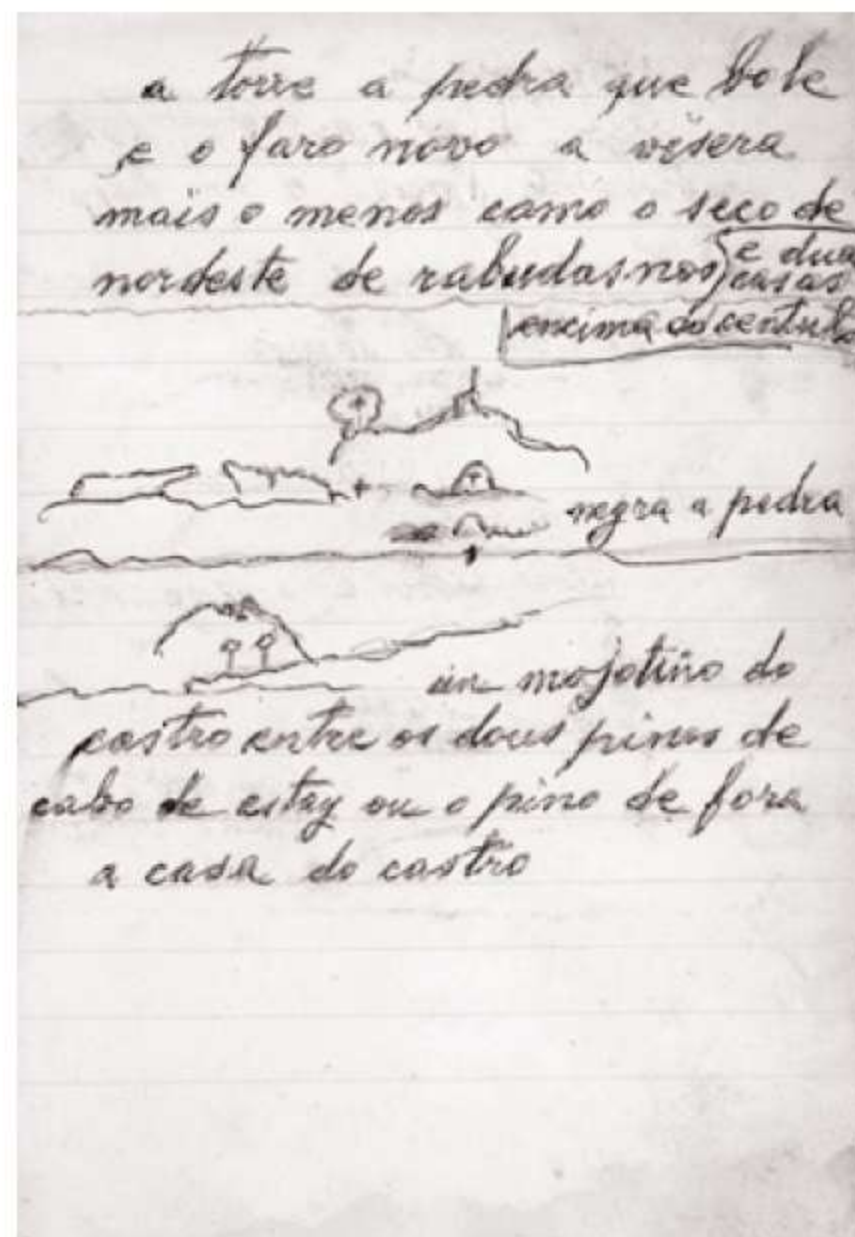 a torre a pedra que bole
e o faro novo a visera
mais o menos como o seco de
nordeste de rabudas nos
e dua
casas
encima do centulo
negra a pedra
un mojotiño do
castro entre os dous pinos de
cabo de estay ou o pino de fora
a casa do castro